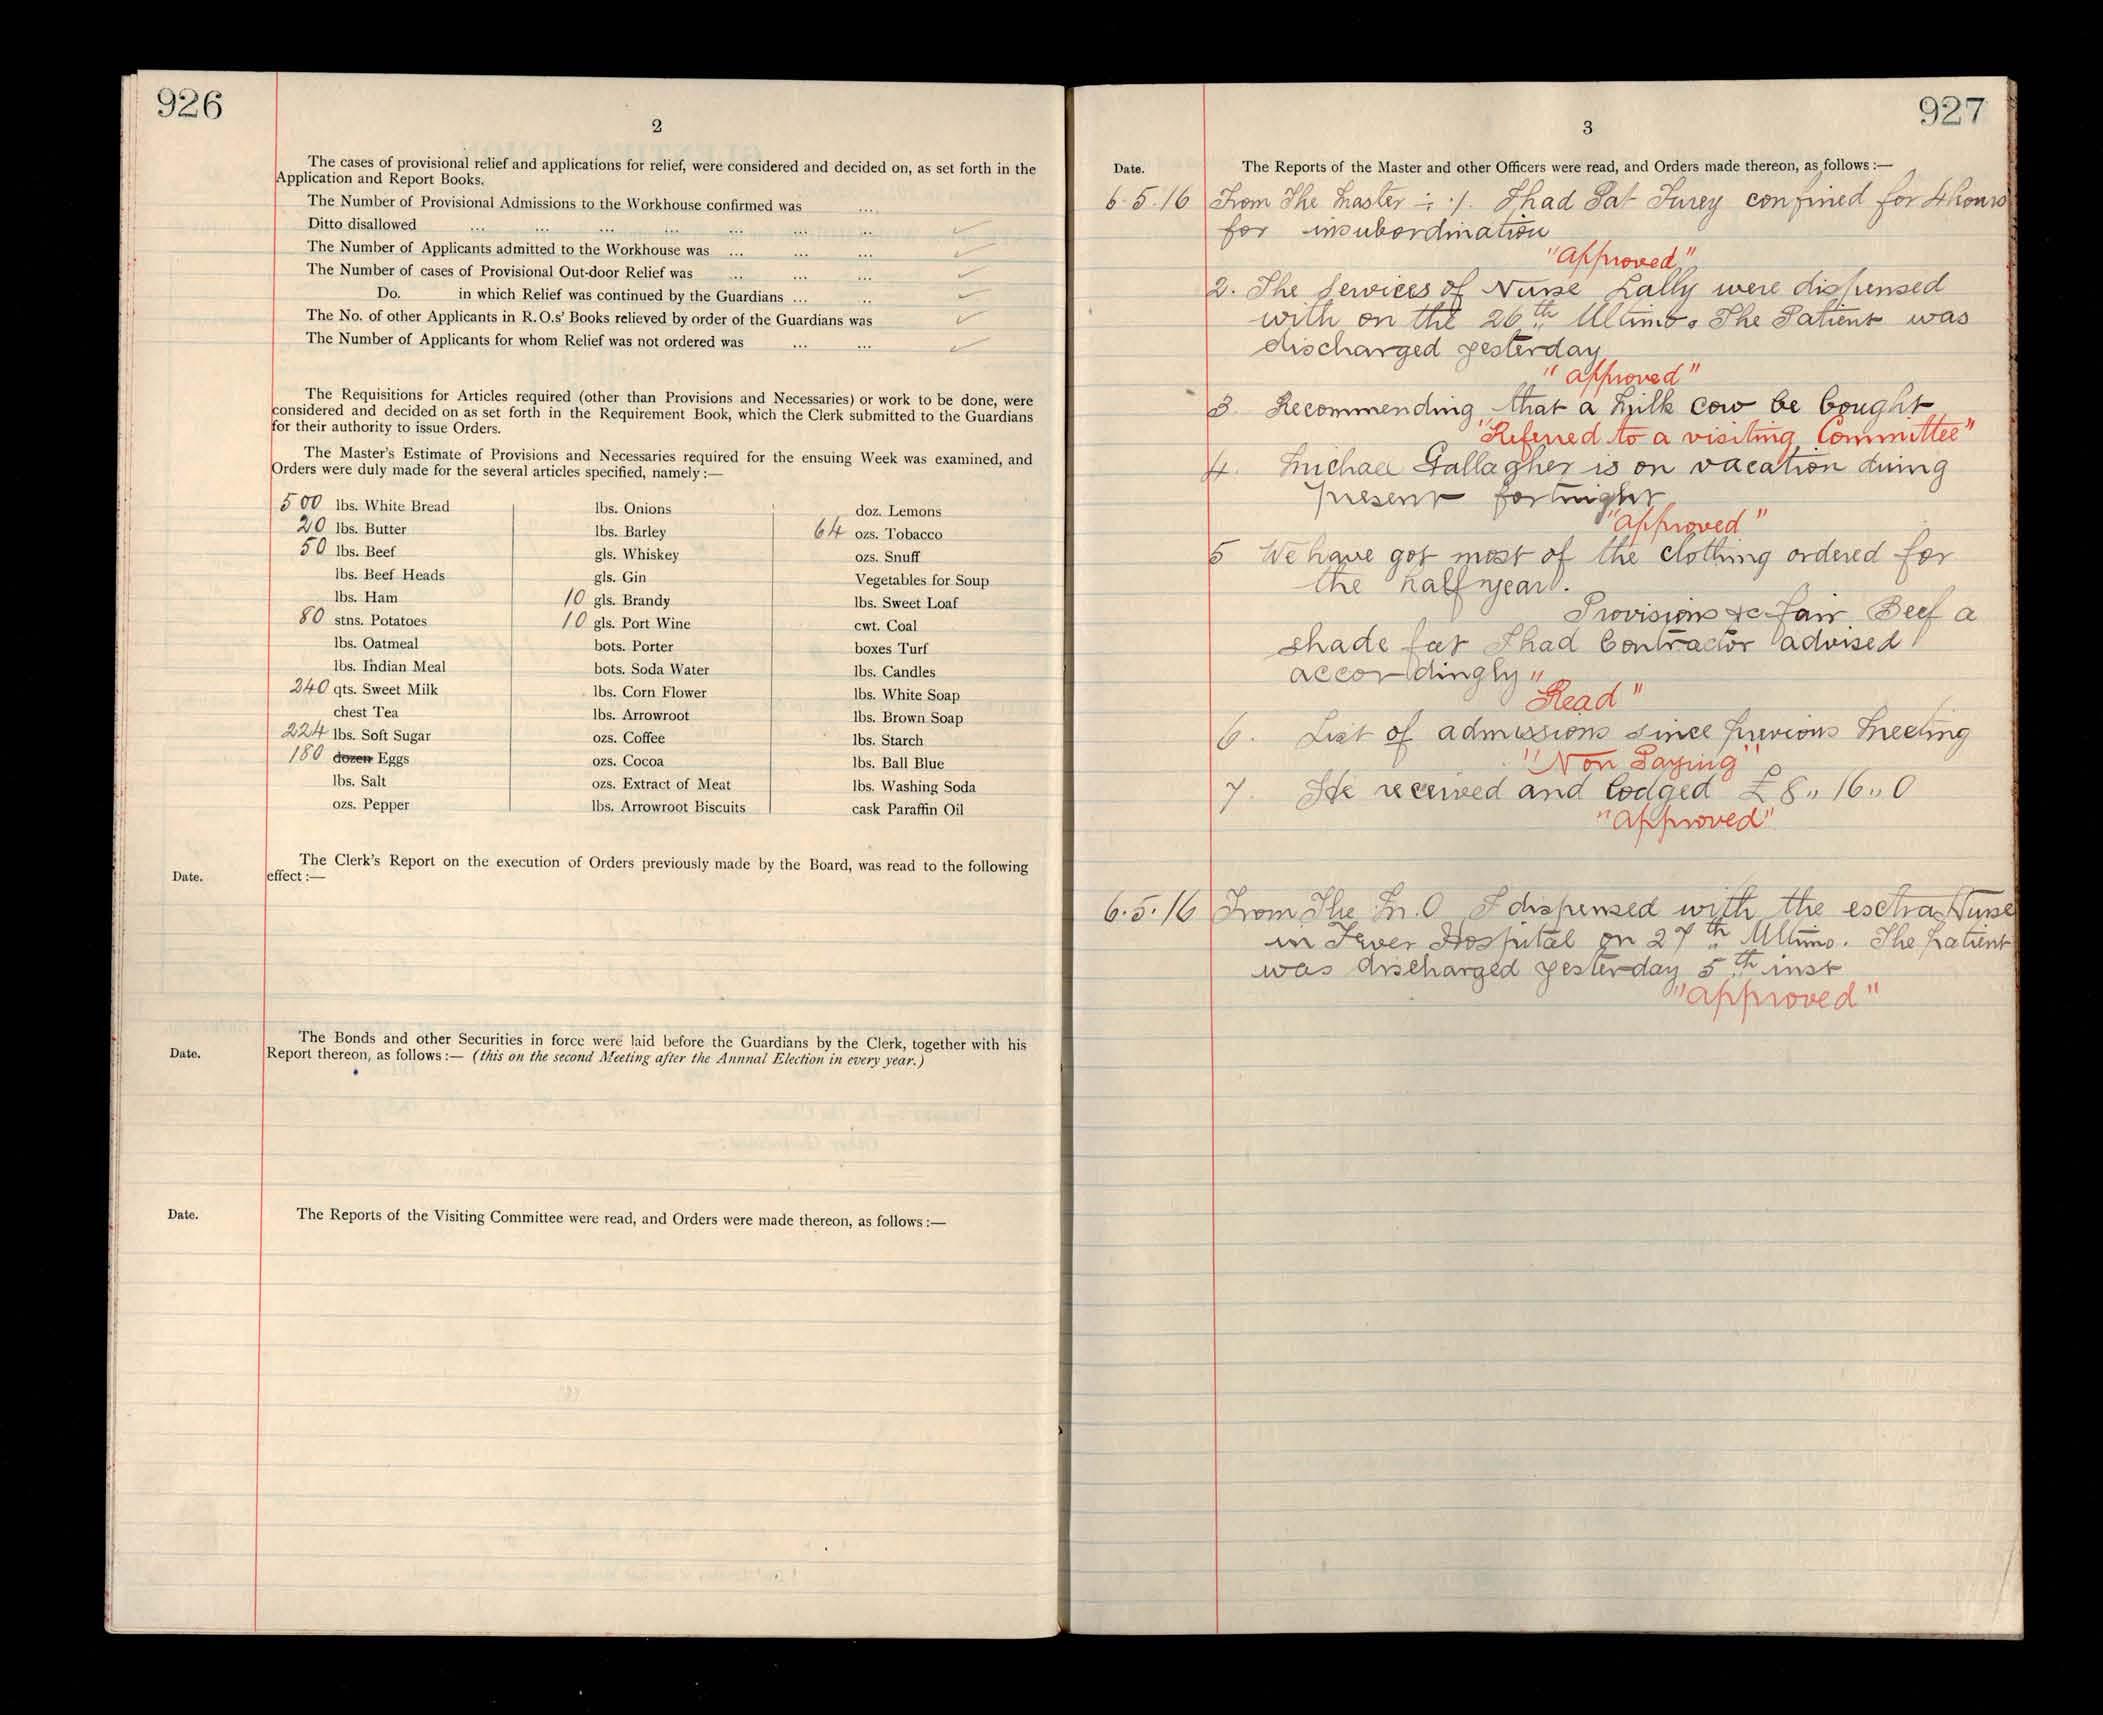 926
2
The cases of provisional relief and applications for relief, were considered and decided on, as set forth in the
Application and Report Books.
The Number of Provisional Admissions to the Workhouse confirmed was ...
Ditto disallowed ... ... ... ... ... ... ...
The Number of Applicants admitted to the Workhouse was ... ... ...
The Number of cases of Provisional Out-door Relief was ... ... ...
Do. in which Relief was continued by the Guardians ... ...
The No. of other Applicants in R.O.s' Books relieved by order of the Guardians was
The Number of Applicants for whom Relief was not ordered was ... ...
The Requisitions for Articles required (other than Provisions and Necessaries) or work to be done, were
considered and decided on as set forth in the Requirement Book, which the Clerk submitted to the Guardians
for their authority to issue Orders.
The Master's Estimate of Provisions and Necessaries required for the ensuing Week was examined, and
Orders were duly made for the several articles specified, namely :—
500 lbs. White Bread
20 lbs. Butter
50 lbs. Beef
lbs. Beef Heads
lbs. Ham
80 stns. Potatoes
lbs. Oatmeal
lbs. Indian Meal
240 qts. Sweet Milk
chest Tea
224 lbs. Soft Sugar
180 dozen Eggs
lbs. Salt
ozs. Pepper
lbs. Onions
lbs. Barley
gls. Whiskey
gls. Gin
10 gls. Brandy
10 gls. Port Wine
bots. Porter
bots. Soda Water
lbs. Corn Flower
lbs. Arrowroot
ozs. Coffee
ozs. Cocoa
ozs. Extract of Meat
lbs. Arrowroot Biscuits
doz. Lemons
64 ozs. Tobacco
ozs. Snuff
Vegetables for Soup
lbs. Sweet Loaf
cwt. Coal
boxes Turf
lbs. Candles
lbs. White Soap
lbs. Brown Soap
lbs. Starch
lbs. Ball Blue
lbs. Washing Soda
cask Paraffin Oil
The Clerk's Report on the execution of Orders previously made by the Board, was read to the following
Date. effect :—
The Bonds and other Securities in force were laid before the Guardians by the Clerk, together with his
Date. Report thereon, as follows :— (this on the second Meeting after the Annnal Election in every year.)
Date. The Reports of the Visiting Committee were read, and Orders were made thereon, as follows :—
927
3
Date. The Reports of the Master and other Officers were read, and Orders made thereon, as follows :—
6.5.16 From The Master :- 1. I had Pat Furey confined for 4 hours
for insubordination
"Approved"
2. The Services of Nurse Lally were dispensed
with on the 26th Ultimo. The Patient was
discharged yesterday
"Approved"
3. Recommending that a Milk cow be bought
"Referred to a visiting Committee"
4. Michael Gallagher is on vacation during
present fortnight
"Approved"
5 We have got most of the clothing ordered for
the half year.
Provisions &c fair Beef a
shade fat I had Contractor advised
accordingly"
Read"
6. List of admissions since previous Meeting
"Non Paying"
7. He received and lodged £8,, 16,, 0
"Approved"
6.5.16 From The M.O I dispensed with the esctra Nurse
in Fever Hospital on 27th Ultimo. The patient
was discharged yesterday 5th inst
"Approved"